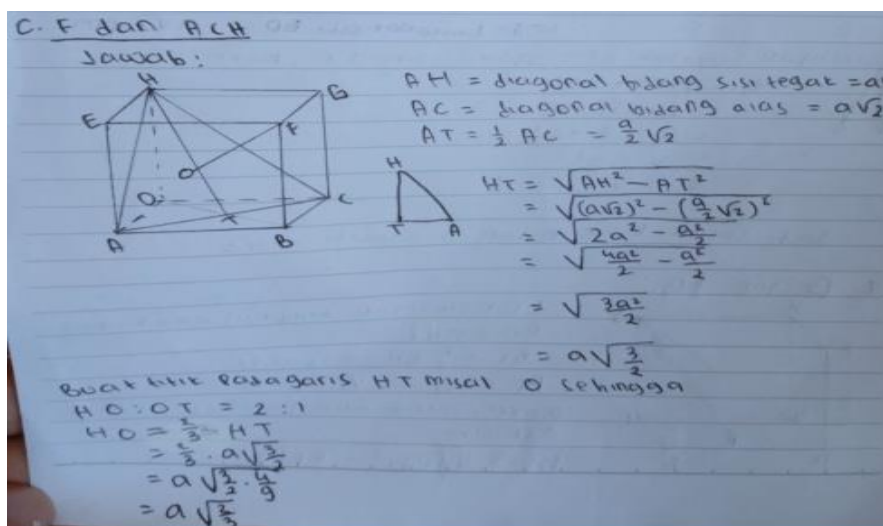 C. F dan ACH
Jawab:
H
G
E
F
O
D
C
T
A
B
AH = diagonal bidang sisi tegak = a
AC = diagonal bidang alas = a√2
AT = 1/2 AC = a/2 √2
H
T
A
HT = √(AH² - AT²)
= √((a√2)² - (a/2 √2)²)
= √(2a² - a²/2)
= √(4a²/2 - a²/2)
= √(3a²/2)
= a√(3/2)
Buat titik pada garis HT misal O sehingga
HO : OT = 2 : 1
HO = 2/3 . HT
= 2/3 . a√(3/2)
= a√(3/2 . 4/9)
= a√(2/3)